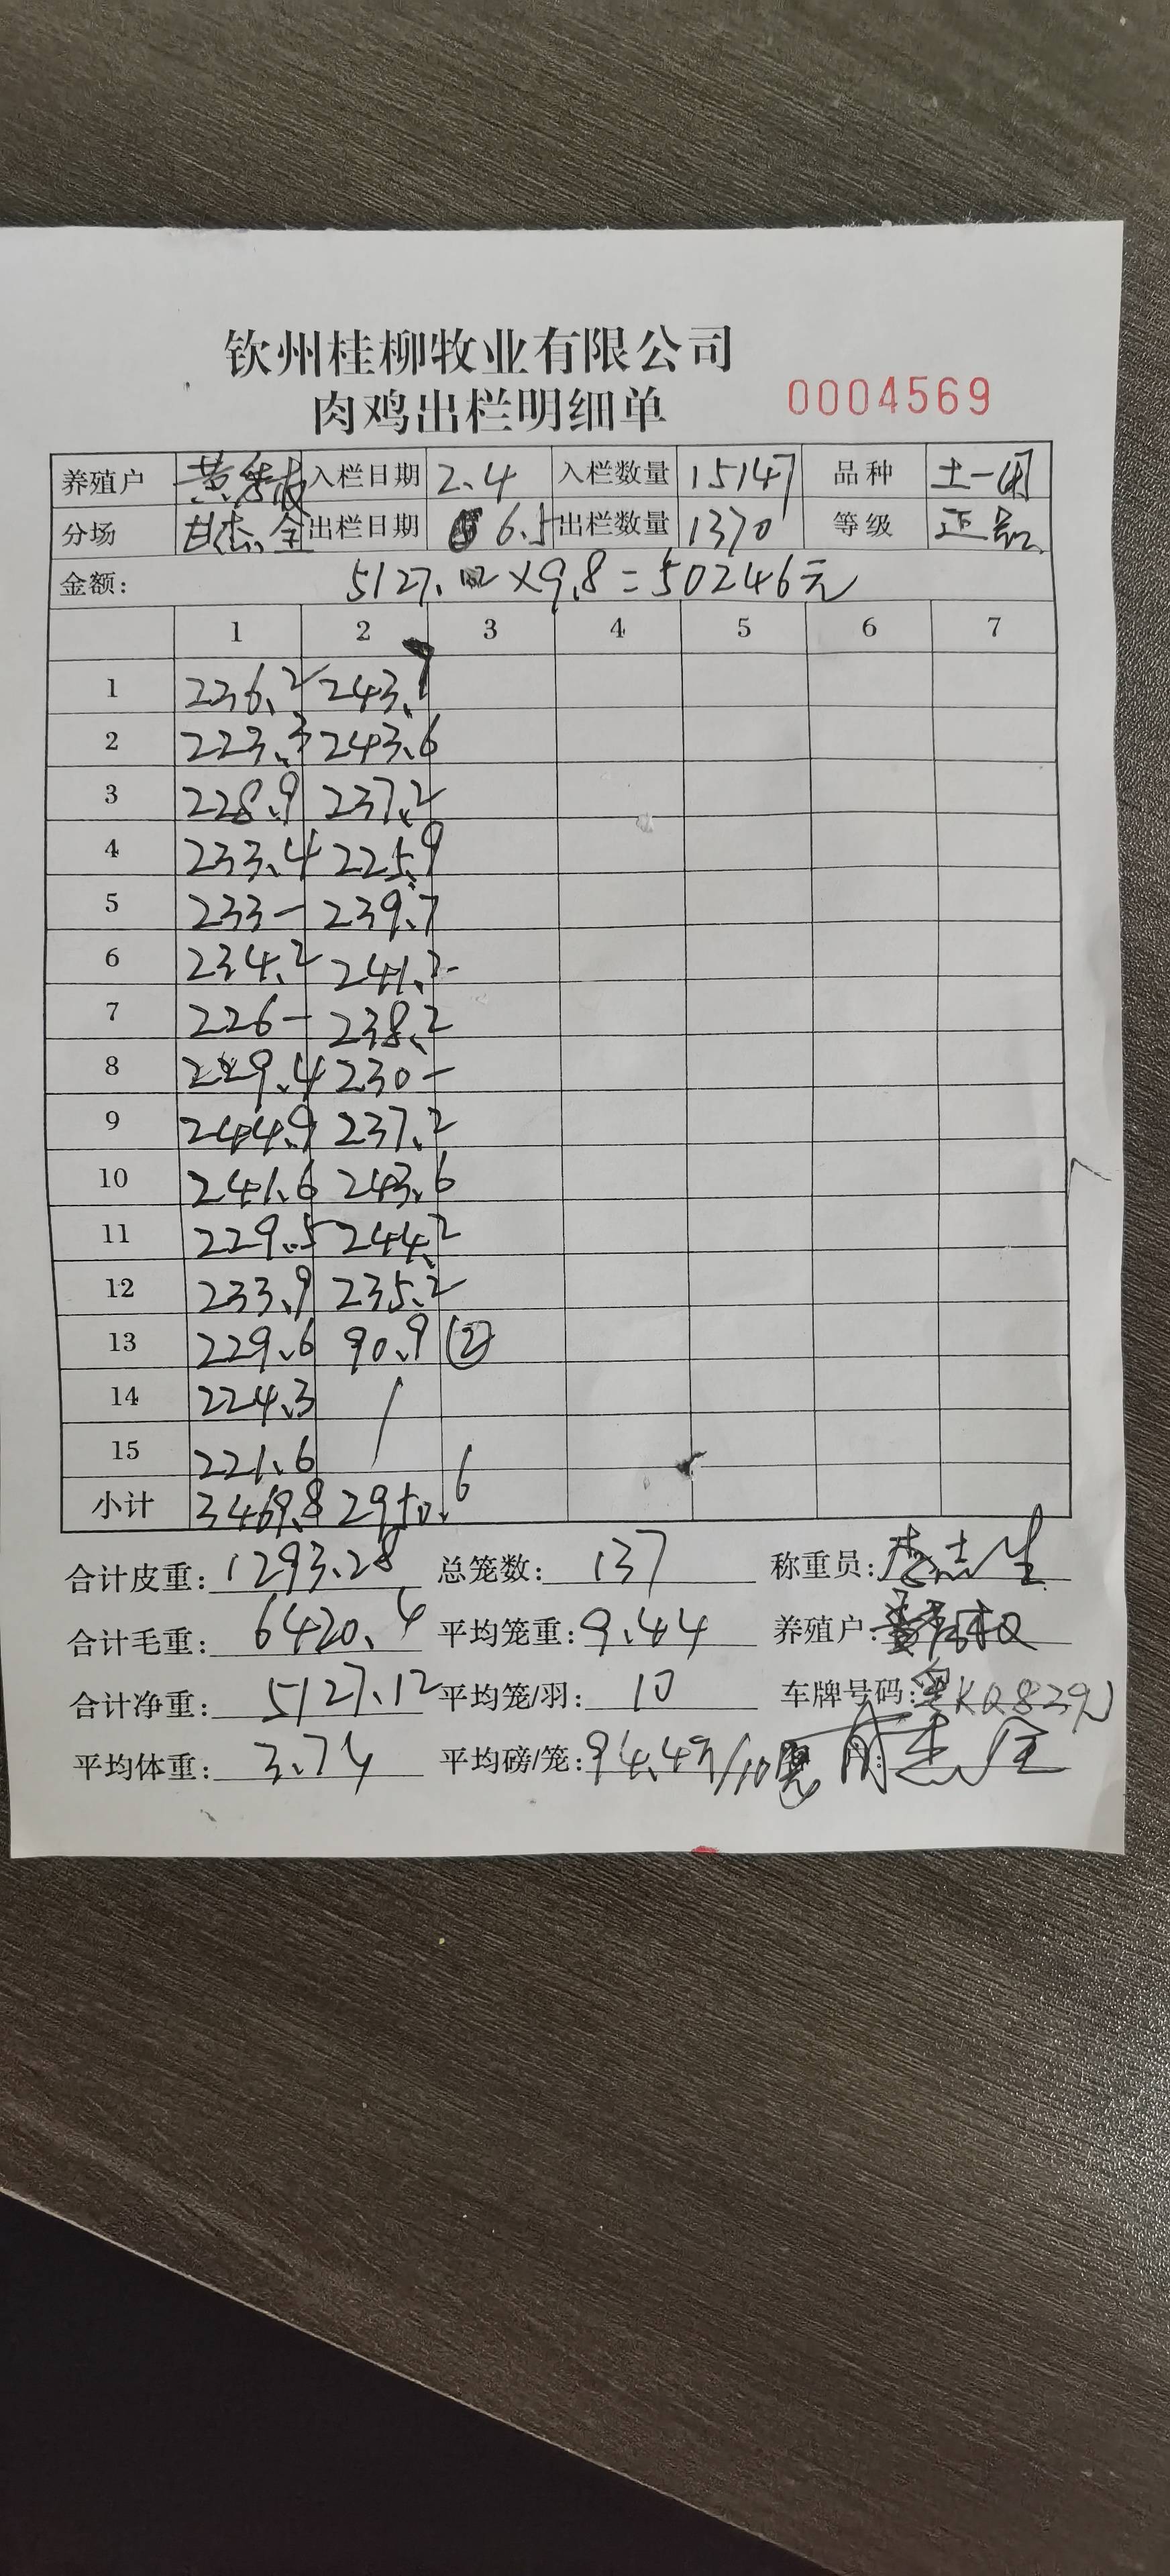 钦州桂柳牧业有限公司
肉鸡出栏明细单 0004569
养殖户 黄 入栏日期 2.4 入栏数量 15147 品种 土一
分场 甘杰全 出栏日期 6.5 出栏数量 1370 等级 正品
金额: 5127.12×9.8=50246元
1 2 3 4 5 6 7
1 236.2 243.9
2 223.3 243.6
3 228.9 237.2
4 233.4 225.9
5 233- 239.7
6 234.2 241.2
7 226- 238.2
8 229.4 230-
9 244.9 237.2
10 241.6 243.6
11 229.5 244.2
12 233.9 235.2
13 229.6 90.9 ②
14 224.3 /
15 221.6
小计 3469.8 2950.6
合计皮重: 1293.28 总笼数: 137 称重员: 志生
合计毛重: 6420.4 平均笼重: 9.44 养殖户:
合计净重: 5127.12 平均笼/羽: 10 车牌号码: 粤KQ829J
平均体重: 3.74 平均磅/笼: 94.4 杰全